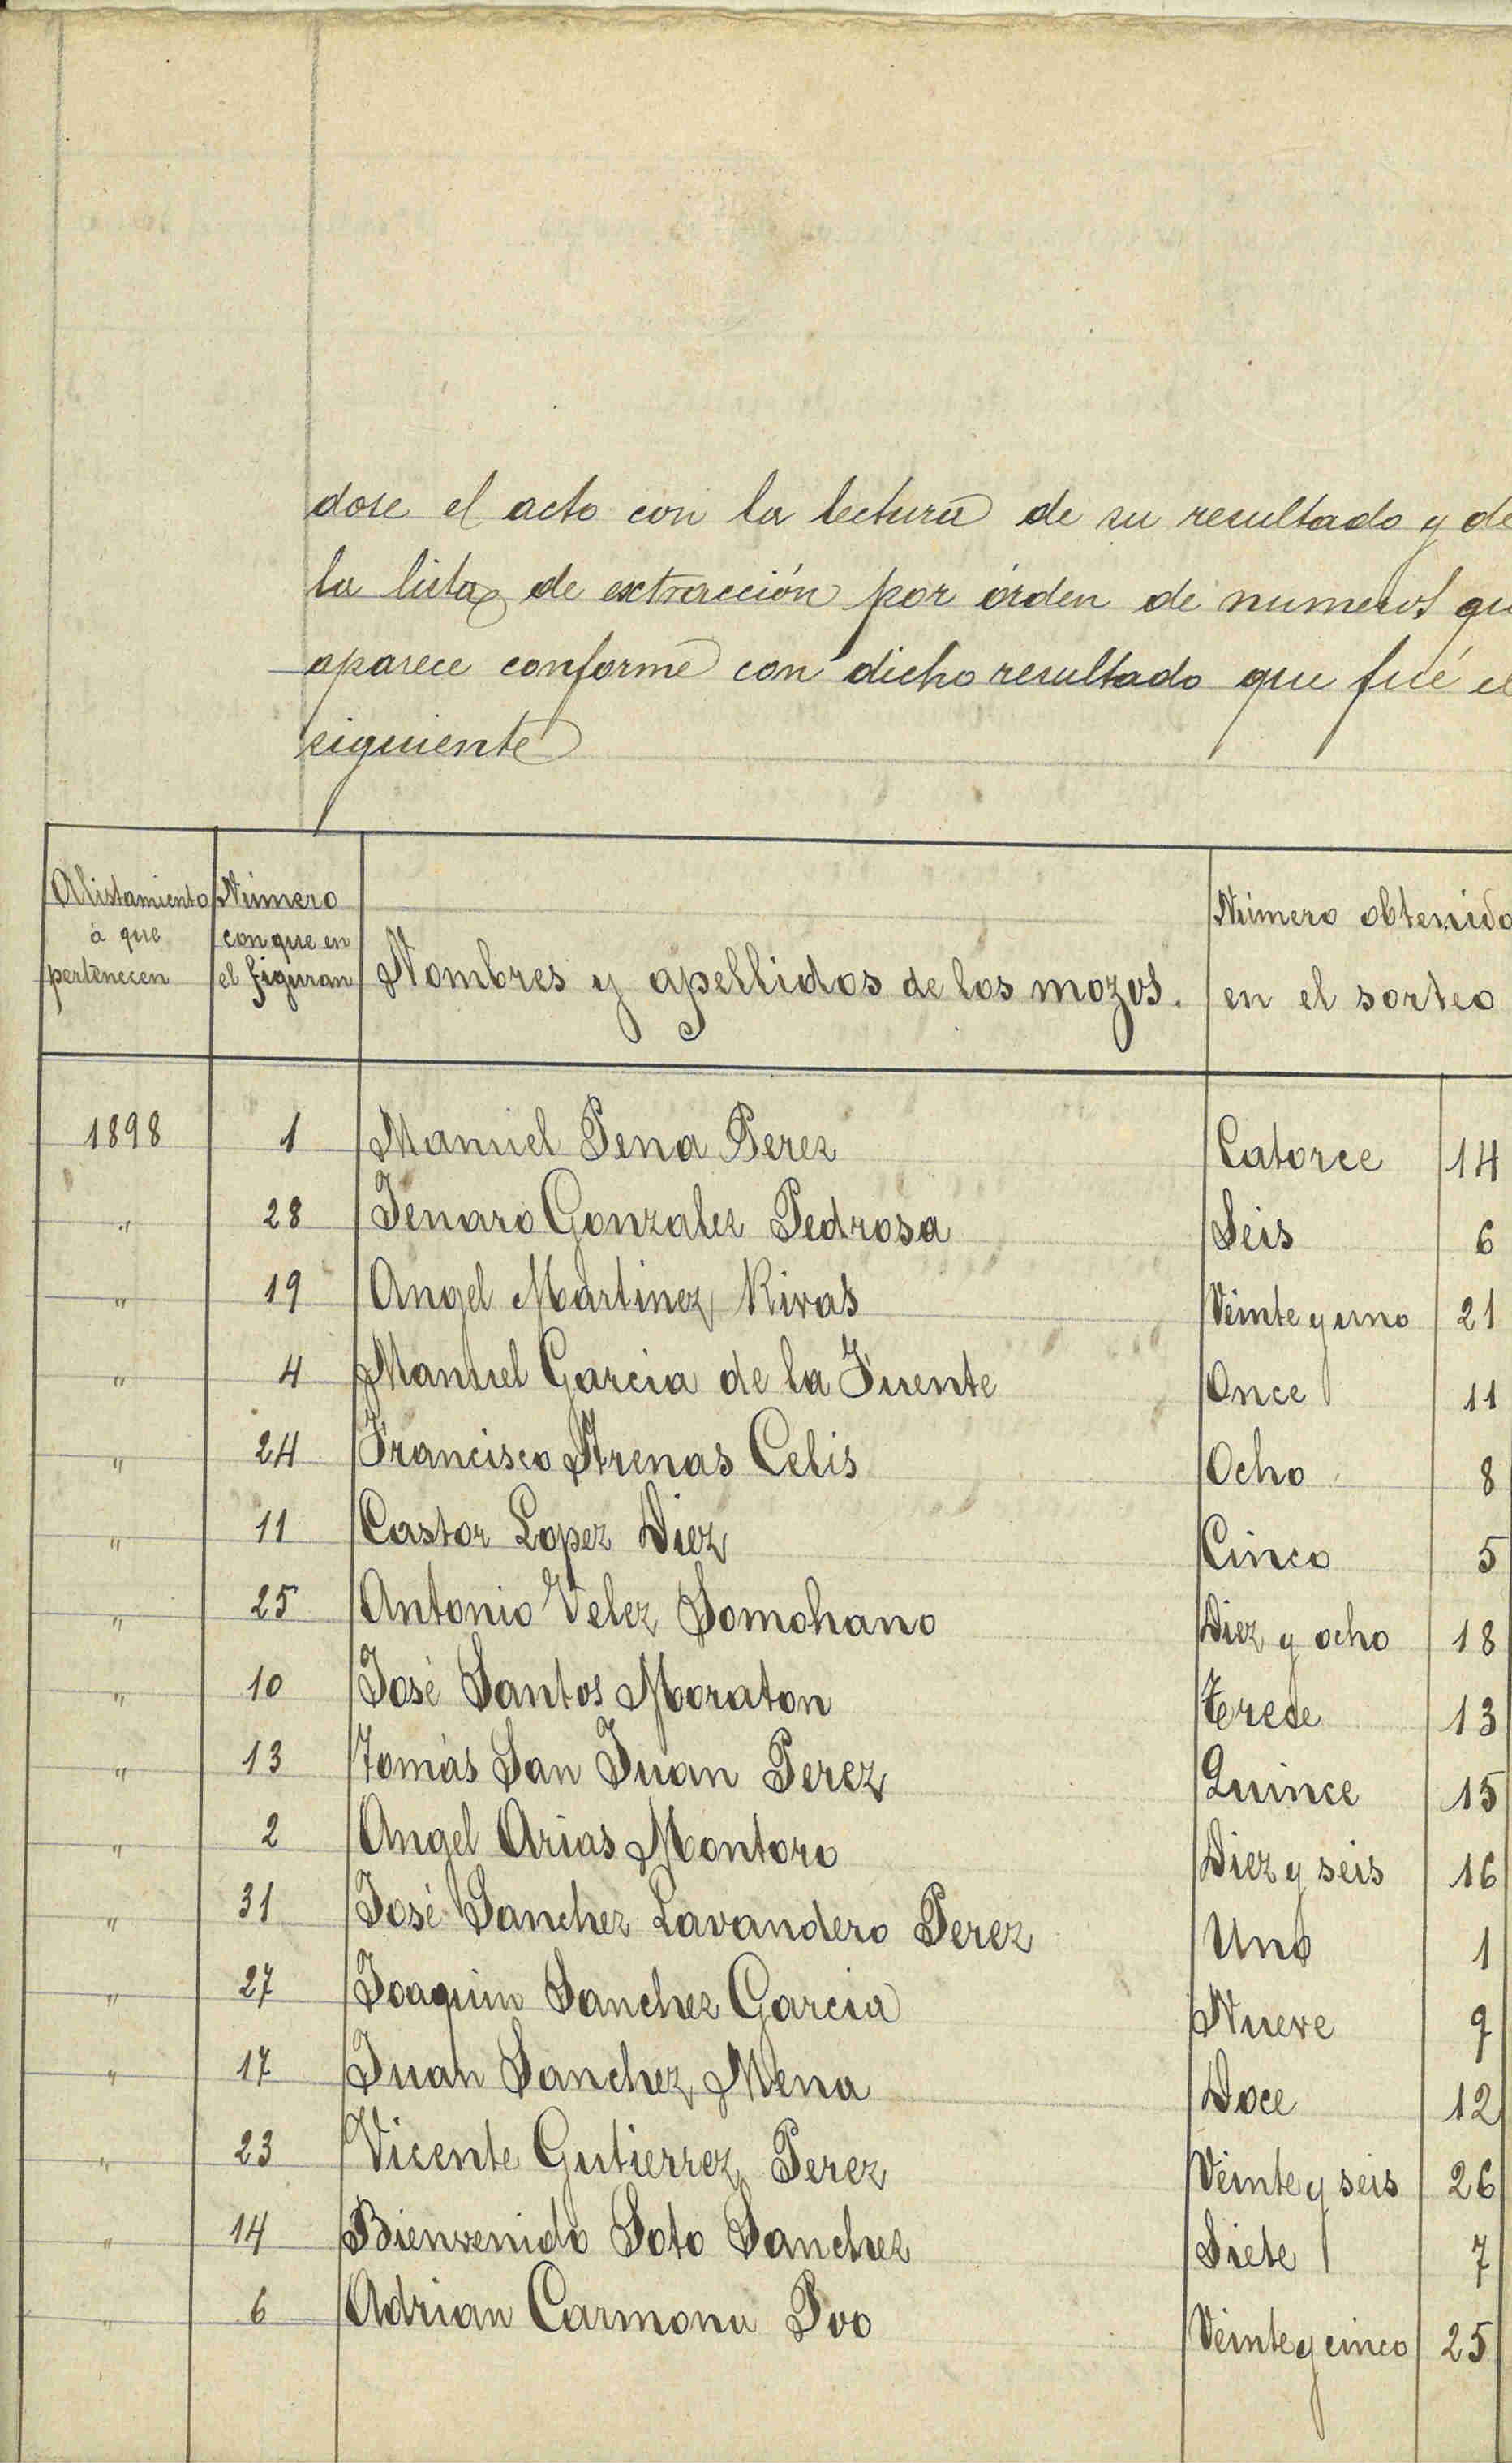 dose el acto con la lectura de su resultado y de
la lista de extracción por órden de numeros qu
aparece conforme con dicho resultado que fué el
siguiente
Alistamiento à que pertenecen | Número con que en el figuran | Nombres y apellidos de los mozos. | Número obtenido en el sorteo
1898 | 1 | Manuel Pena Perez | Catorce | 14
" | 28 | Jenaro Gonzalez Pedrosa | Seis | 6
" | 19 | Angel Martinez Rivas | Veinte y uno | 21
" | 4 | Manuel Garcia de la Fuente | Once | 11
" | 24 | Francisco Arenas Celis | Ocho | 8
" | 11 | Castor Lopez Diez | Cinco | 5
" | 25 | Antonio Velez Somohano | Diez y ocho | 18
" | 10 | José Santos Moraton | Trece | 13
" | 13 | Tomás San Juan Perez | Quince | 15
" | 2 | Angel Arias Montoro | Diez y seis | 16
" | 31 | José Sanchez Lavandero Perez | Uno | 1
" | 27 | Joaquin Sanchez Garcia | Nueve | 9
" | 17 | Juan Sanchez Mena | Doce | 12
" | 23 | Vicente Gutierrez Perez | Veinte y seis | 26
" | 14 | Bienvenido Soto Sanchez | Siete | 7
" | 6 | Adrian Carmona | Veinte y cinco | 25